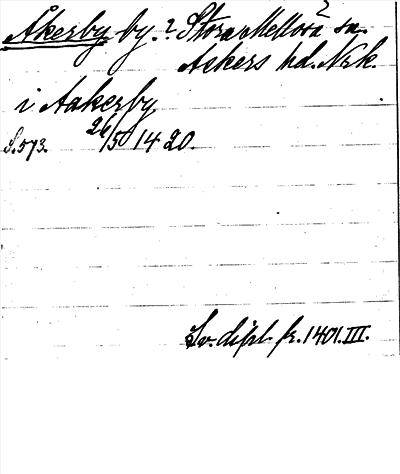 Åkerby by. ? Stora Mellösa sn.
Askers hd. Nrk.
i Aakerby
S. 573. 26/5 1420.
Sv. dipl. fr. 1401. III.